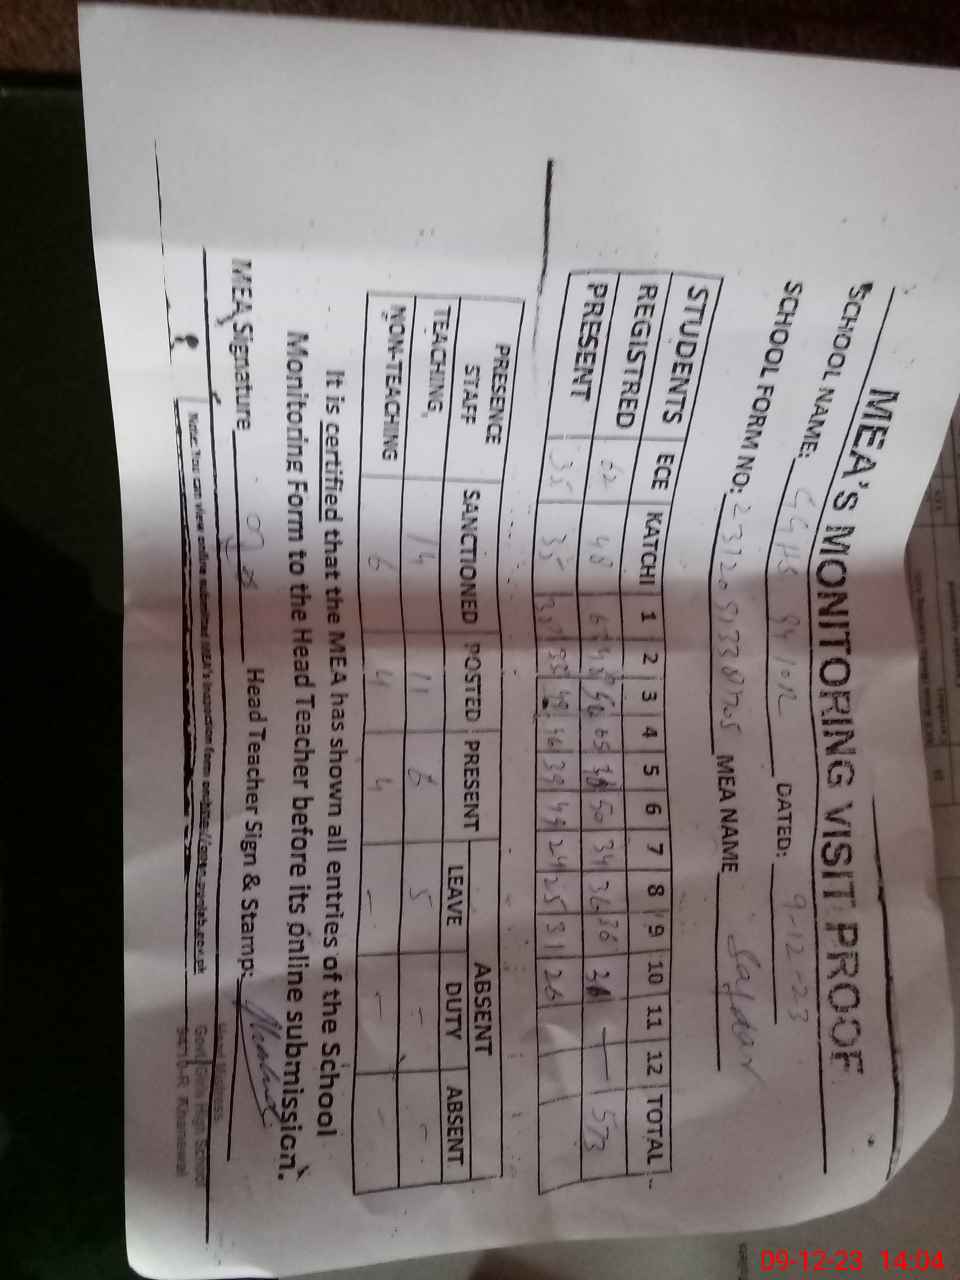 MEA'S MONITORING VISIT PROOF
SCHOOL NAME: GGHS 94/10R DATED: 9-12-23
SCHOOL FORM NO: MEA NAME Safdar
STUDENTS ECE KATCHI 1 2 3 4 5 6 7 8 9 10 11 12 TOTAL
REGISTRED 62 48 56 65 50 34 36 36 - 573
PRESENT 35 35 39 49 24 25 31 26
PRESENCE STAFF SANCTIONED POSTED PRESENT ABSENT
LEAVE DUTY ABSENT
TEACHING 14 11 6 5 - -
NON-TEACHING 6 4 4 - - -
It is certified that the MEA has shown all entries of the School
Monitoring Form to the Head Teacher before its online submission.
MEA Signature Head Teacher Sign & Stamp:
Note: You can view online submitted MEA's inspection form on
Head Mistress
Govt Girls High School
94/10-R Khanewal
09-12-23 14:04